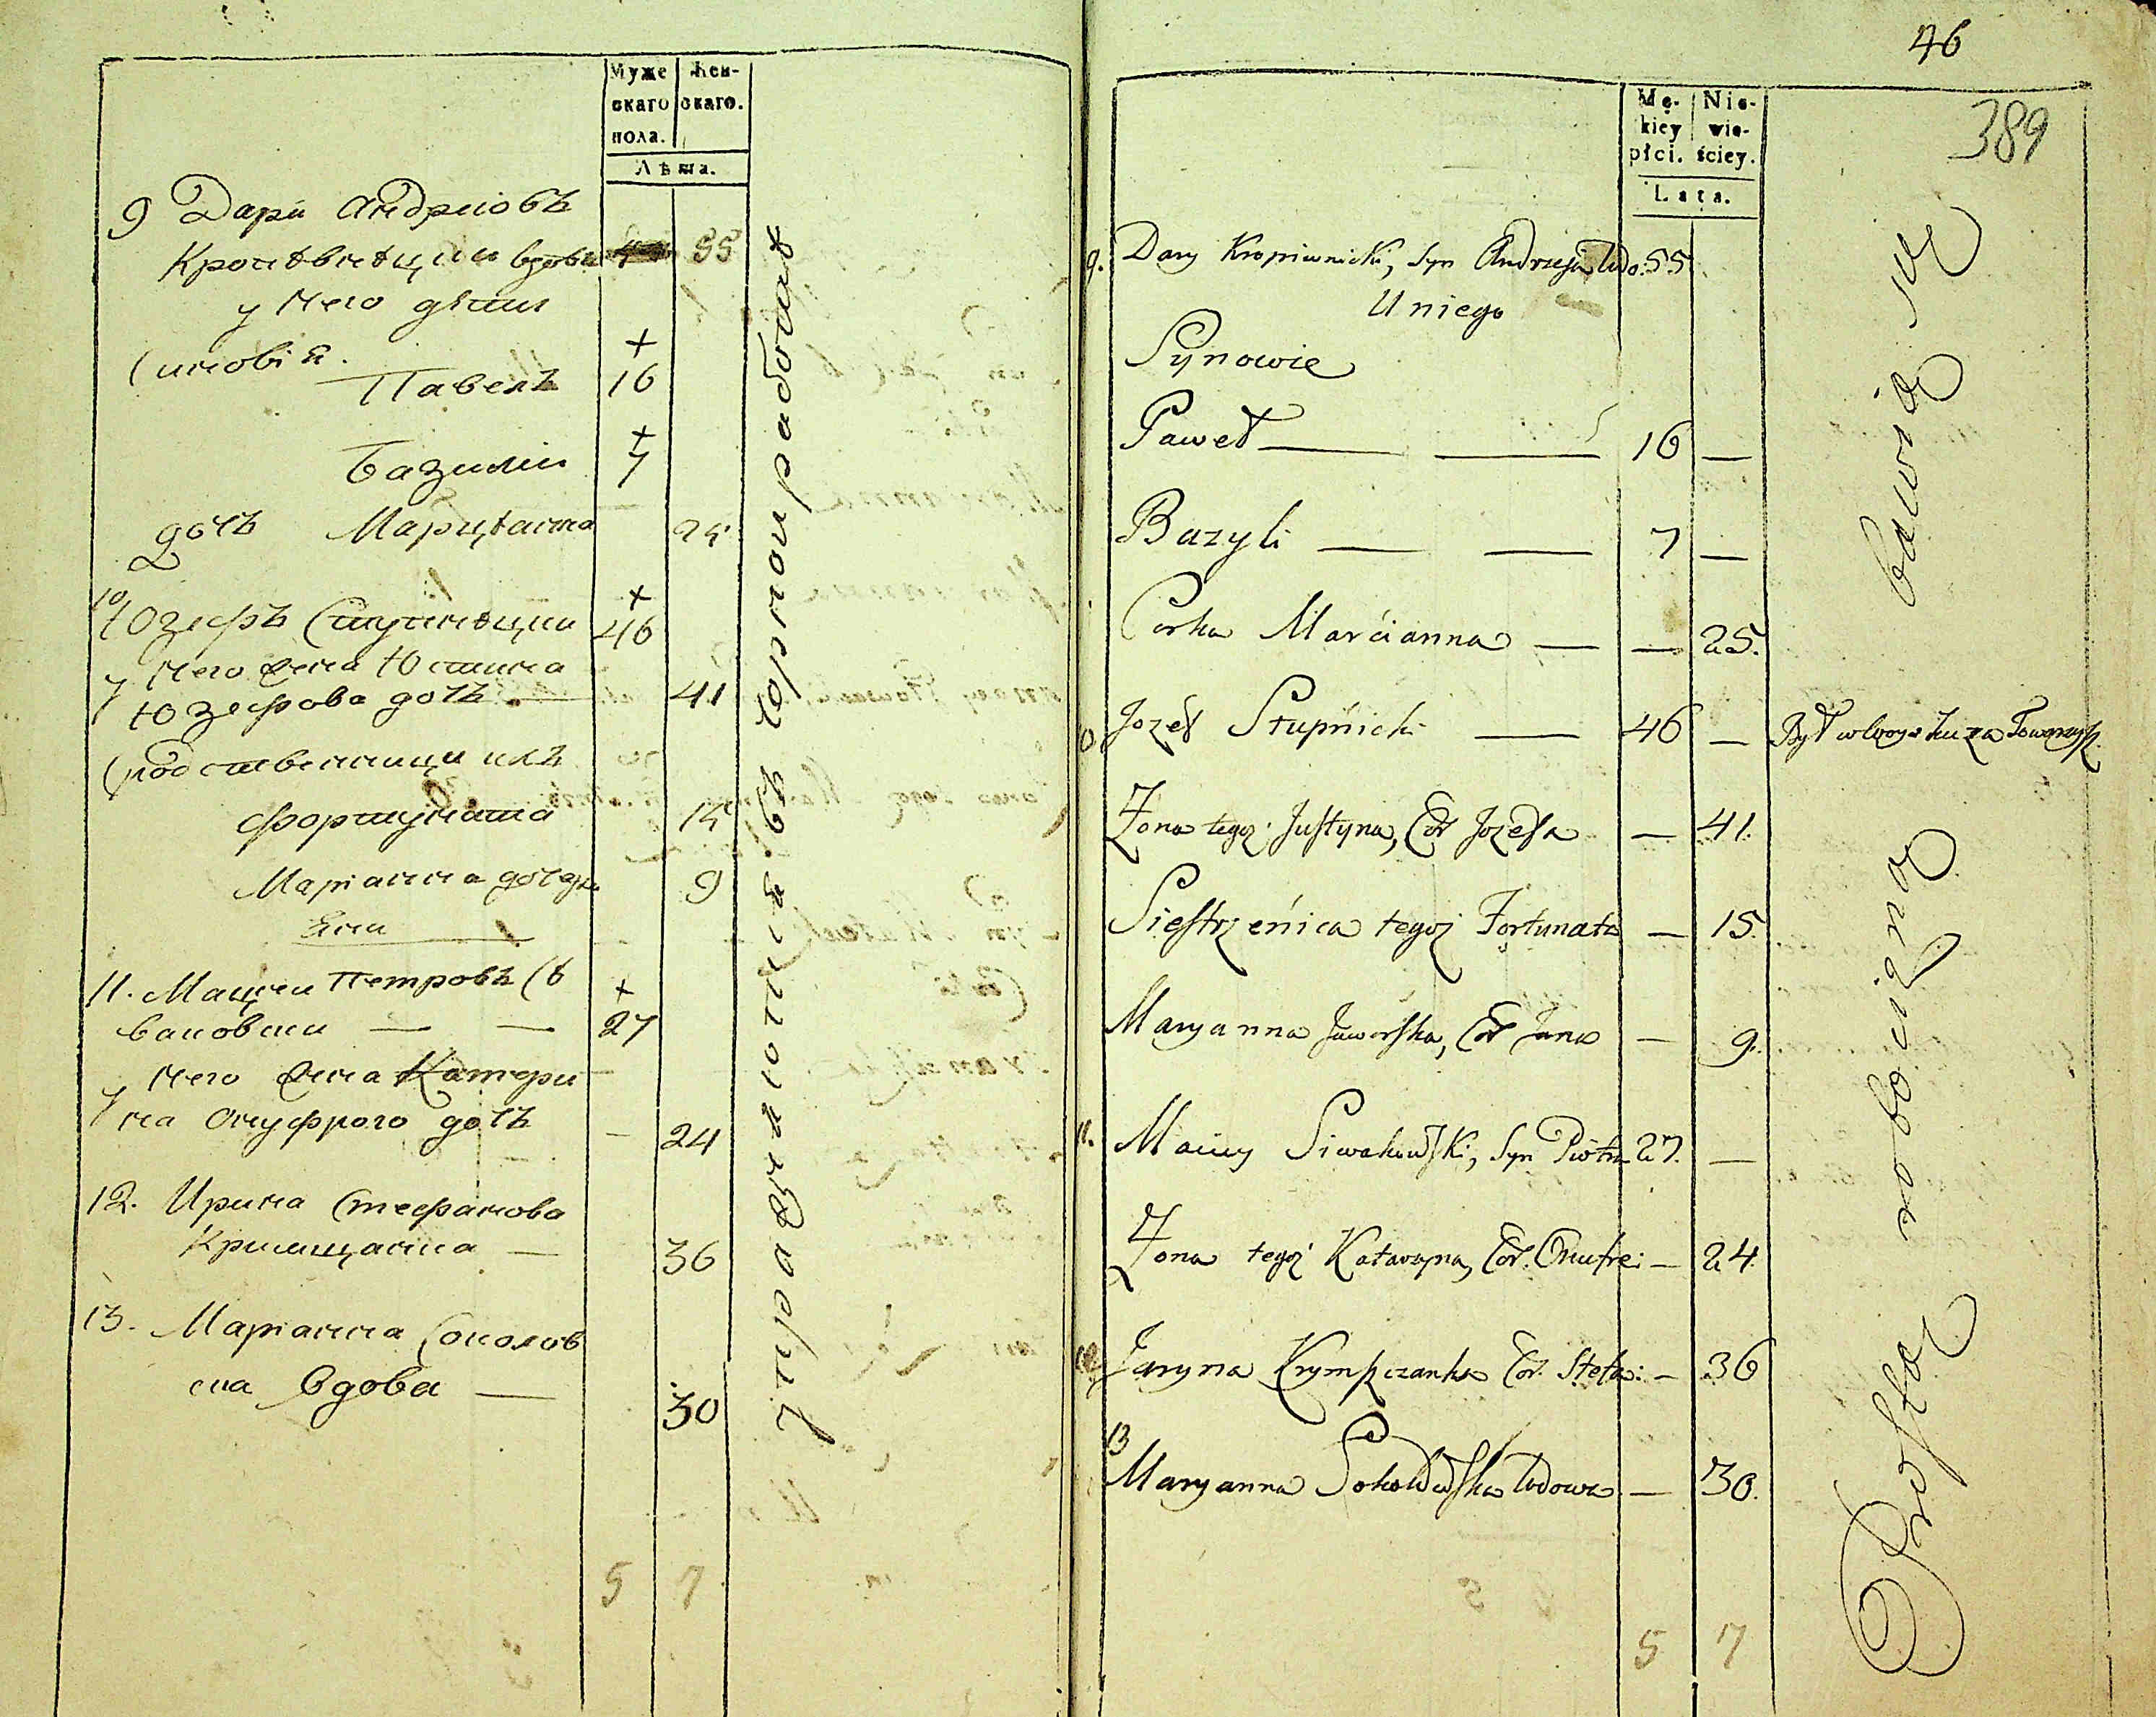 Муже Жен-
скаго скаго.
пола.
Лѣта.
9 Дарій Андреіовъ
Кропѣвнѣцкій вдовъ 55
у Него дѣти
Синовія.
Павелъ + 16
Базилій + 7
дочь Марцѣанна 25
10 Юзефъ Ступнѣцкій + 46
у Него жена Юстина
Юзефова дочь 41
Сродственници ихъ
Фортуната 15
Маріанна дочь 9
Яна
11. Мацѣй Петровъ Сѣ +
ваковскій — — 27
у Него жена Катери —
на Онуфрого дочь — 24
12. Ирина Стефанова
Кримщанка — 36
13. Маріанна Соколов
ска Вдова — 30
5 7
упражняются въ чорнопрацѣ
46
389
Mę- Nie-
kiey wie-
płci. ściey.
Lata.
9. Dary Kropiwnicki, Syn Andrzeja Wdo: 55
U niego
Synowie
Paweł — — 16 —
Bazyli — — 7 —
Corka Marcianna — — 25.
10 Jozef Stupnicki — 46 — Był w Woysku za Towarzysz.
Żona tegoż Justyna, Cór Jozefa — 41.
Siestrzenica tegoż Fortunata — 15.
Maryanna Jaworska, Cór Jana — 9.
11. Maciey Siwakowski, Syn Piotra 27. —
Żona tegoż Katarzyna, Cór. Onufre: — 24.
12 Jaryna Krympczanka Cór. Stefa: — 36
13
Maryanna Sokołowska Wdowa — 30.
5 7
Prostą robocizną bawią się